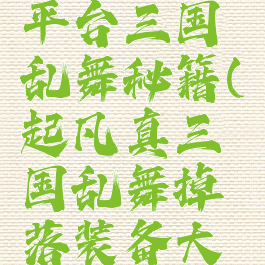 平台三国
乱舞秘籍(
起凡真三
国乱舞掉
落装备大